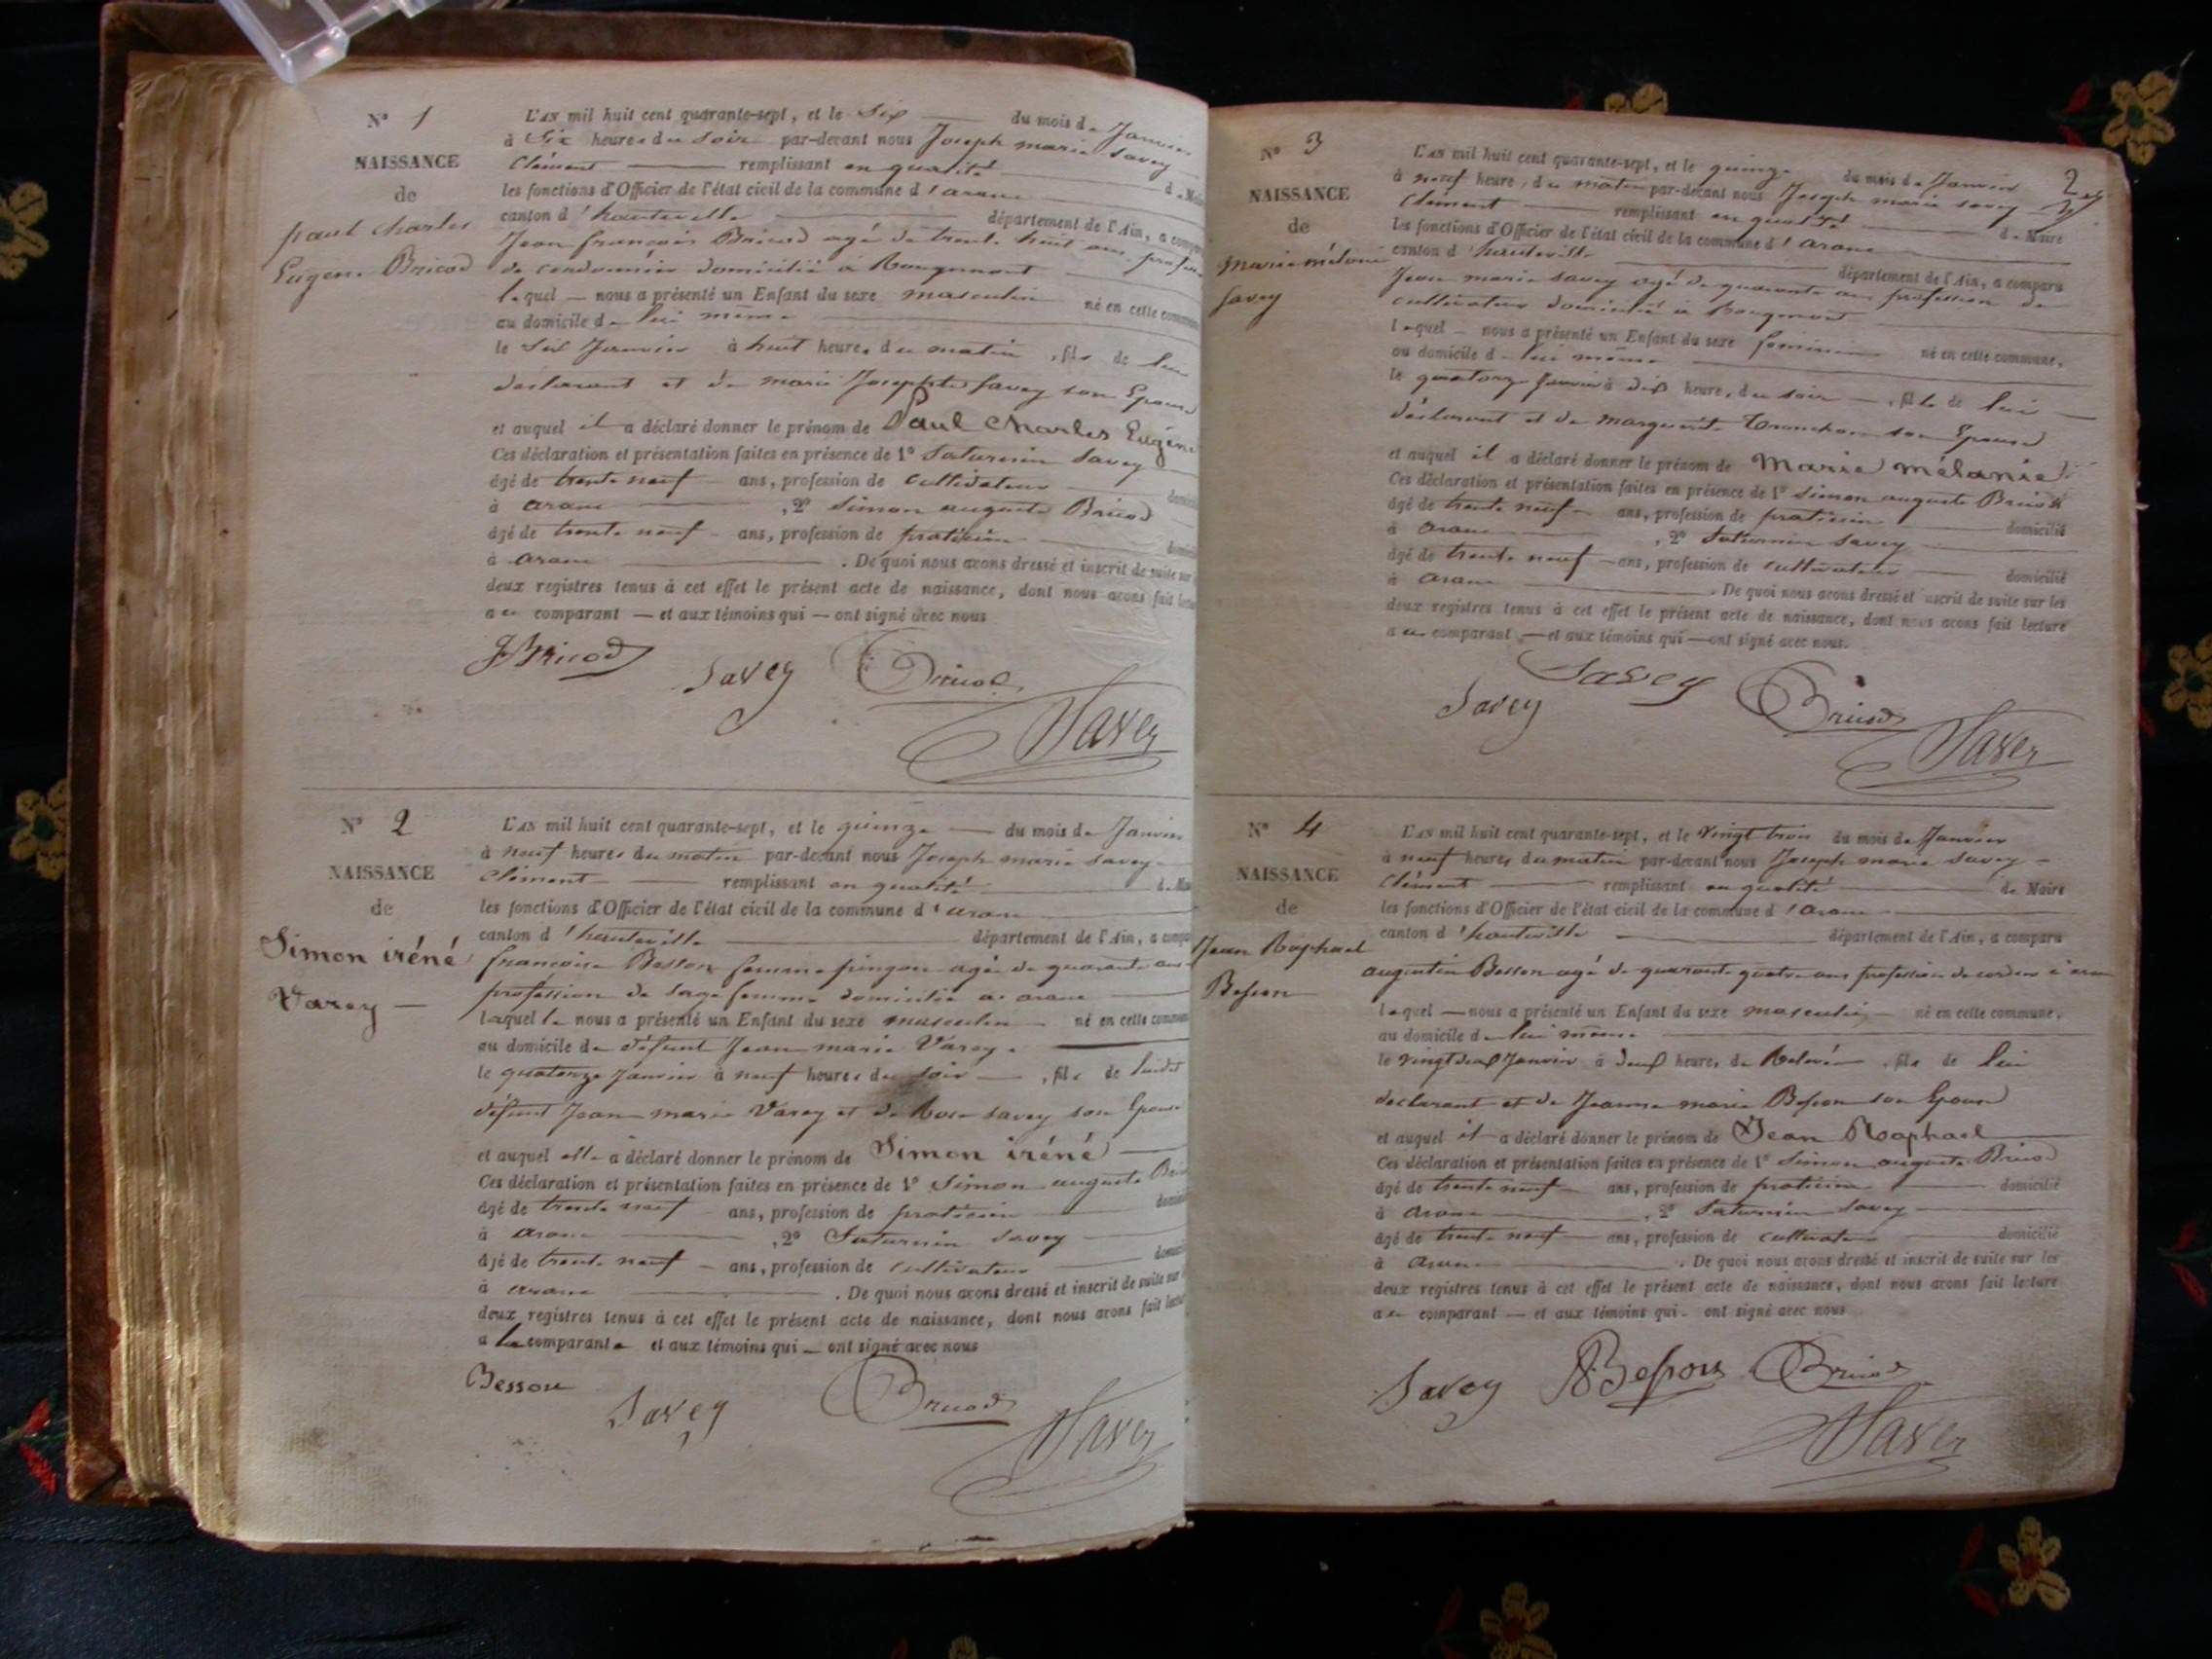 N° 1
NAISSANCE
de
paul charles
Eugene Bricod
L'AN mil huit cent quarante-sept, et le Six du mois de Janvier
à Six heures du soir par-devant nous Joseph marie Savey
Clément remplissant en qualité de Maire
les fonctions d'Officier de l'état civil de la commune d'arane
canton d'hauteville département de l'Ain, a comparu
Jean françois Bricod agé de trente huit ans, profession
de cordonnier domicilié à Rougemont
lequel nous a présenté un Enfant du sexe masculin né en cette commune
au domicile de lui même
le Six Janvier à huit heures du matin, fils de lui
déclarant et de marie Josephte Savey son Epouse
et auquel il a déclaré donner le prénom de Paul Charles Eugène
Ces déclaration et présentation faites en présence de 1° Saturnin Savey
âgé de trente neuf ans, profession de cultivateur domicilié
à arane, 2° Simon auguste Bricod
âgé de trente neuf ans, profession de praticien domicilié
à arane. De quoi nous avons dressé et inscrit de suite sur
deux registres tenus à cet effet le présent acte de naissance, dont nous avons fait lecture
au comparant et aux témoins qui ont signé avec nous
Bricod Savey Bricod
Savey
N° 2
NAISSANCE
de
Simon iréné
Varey
L'AN mil huit cent quarante-sept, et le quinze du mois de Janvier
à neuf heures du matin par-devant nous Joseph marie Savey
Clément remplissant en qualité de Maire
les fonctions d'Officier de l'état civil de la commune d'arane
canton d'hauteville département de l'Ain, a comparu
françoise Besson femme agée de quarante ans
profession de sage femme domiciliée à arane
laquelle nous a présenté un Enfant du sexe masculin né en cette commune
au domicile de défunt Jean marie Varey
le quatorze Janvier à neuf heures du soir, fils de ludit
défunt Jean marie Varey et de Rose Savey son Epouse
et auquel elle a déclaré donner le prénom de Simon iréné
Ces déclaration et présentation faites en présence de 1° Simon auguste Bricod
âgé de trente neuf ans, profession de praticien domicilié
à arane, 2° Saturnin Savey
âgé de trente neuf ans, profession de cultivateur domicilié
à arane. De quoi nous avons dressé et inscrit de suite sur
deux registres tenus à cet effet le présent acte de naissance, dont nous avons fait lecture
a la comparante et aux témoins qui ont signé avec nous
Besson Savey Bricod
Savey
2
N° 3
NAISSANCE
de
Marie mélanie
Savey
L'AN mil huit cent quarante-sept, et le quinze du mois de Janvier
à neuf heures du matin par-devant nous Joseph marie Savey
Clément remplissant en qualité de Maire
les fonctions d'Officier de l'état civil de la commune d'arane
canton d'hauteville département de l'Ain, a comparu
Jean marie Savey agé de quarante ans profession de
cultivateur domicilié à Rougemont
lequel nous a présenté un Enfant du sexe feminin né en cette commune,
au domicile de lui même
le quatorze Janvier à dix heures du soir, fille de lui
déclarant et de marguerite son Epouse
et auquel il a déclaré donner le prénom de Marie mélanie
Ces déclaration et présentation faites en présence de 1° Simon auguste Bricod
âgé de trente neuf ans, profession de praticien domicilié
à arane, 2° Saturnin Savey
âgé de trente neuf ans, profession de cultivateur domicilié
à arane. De quoi nous avons dressé et inscrit de suite sur les
deux registres tenus à cet effet le présent acte de naissance, dont nous avons fait lecture
au comparant et aux témoins qui ont signé avec nous.
Savey Savey Bricod
Savey
N° 4
NAISSANCE
de
Jean Raphael
Besson
L'AN mil huit cent quarante-sept, et le vingt trois du mois de Janvier
à neuf heures du matin par-devant nous Joseph marie Savey
Clément remplissant en qualité de Maire
les fonctions d'Officier de l'état civil de la commune d'arane
canton d'hauteville département de l'Ain, a comparu
augustin Besson agé de quarante quatre ans profession de à arane
lequel nous a présenté un Enfant du sexe masculin né en cette commune,
au domicile de lui même
le vingt deux Janvier à deux heures de Relevée, fils de lui
declarant et de Jeanne marie Besson son Epouse
et auquel il a déclaré donner le prénom de Jean Raphael
Ces déclaration et présentation faites en présence de 1° Simon auguste Bricod
âgé de trente neuf ans, profession de praticien domicilié
à arane, 2° Saturnin Savey
âgé de trente neuf ans, profession de cultivateur domicilié
à arane. De quoi nous avons dressé et inscrit de suite sur les
deux registres tenus à cet effet le présent acte de naissance, dont nous avons fait lecture
au comparant et aux témoins qui ont signé avec nous
Savey Besson Bricod
Savey